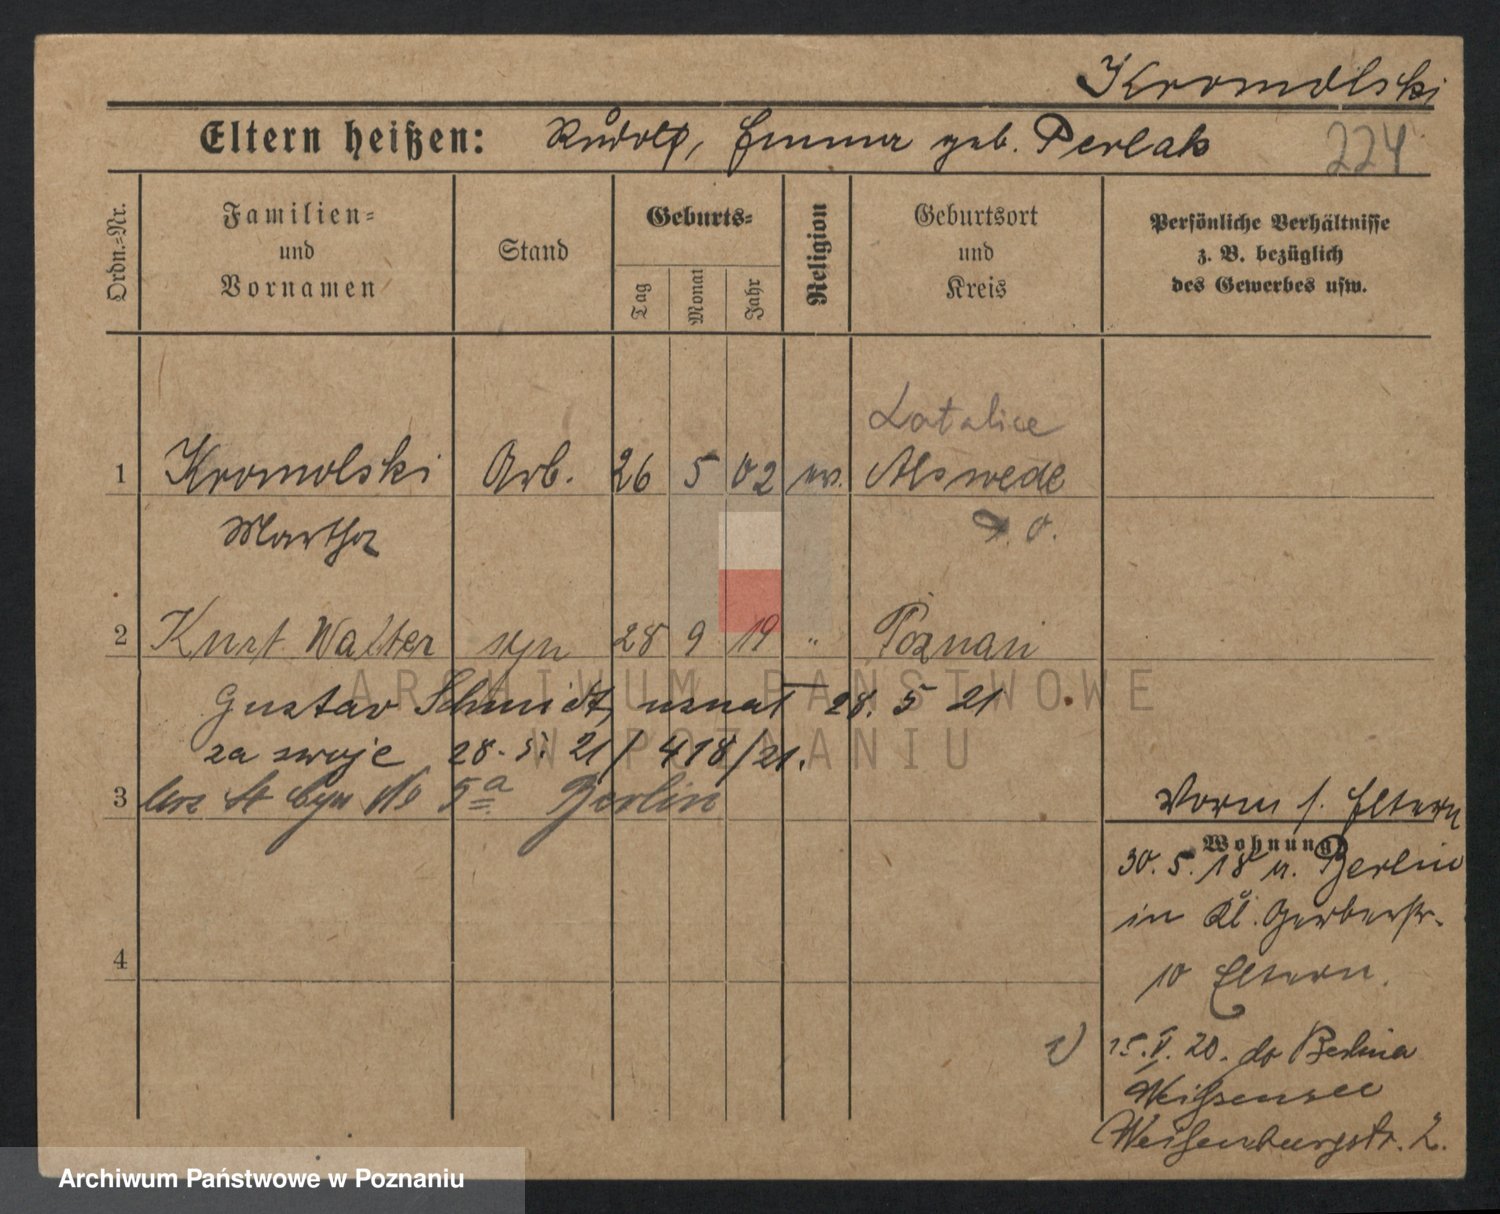 Kromolski
Eltern heißen: Rudolf, Emma geb. Perlak 224
Ordn.=Nr.
Familien=
und
Vornamen
Stand
Geburts=
Tag
Monat
Jahr
Religion
Geburtsort
und
Kreis
Persönliche Verhältnisse
z. B. bezüglich
des Gewerbes usw.
Latalice
1 Kromolski Arb. 26 5 02 ev. Alswede
Martha
2 Kurt Walter syn 28 9 19 " Poznań
Gustav Schmidt, uznał 28. 5 21
za swoje 28. 5. 21/ 418/21.
3 5a Berlin
4
Vorm f. Eltern
Wohnung
30. 5. 18 v. Berlin
in Kl. Gerberstr.
10 Eltern.
15.V. 20. do Berlina
Weißensee
Weißenburgstr. 2.
ARCHIWUM PAŃSTWOWE
W POZNANIU
Archiwum Państwowe w Poznaniu